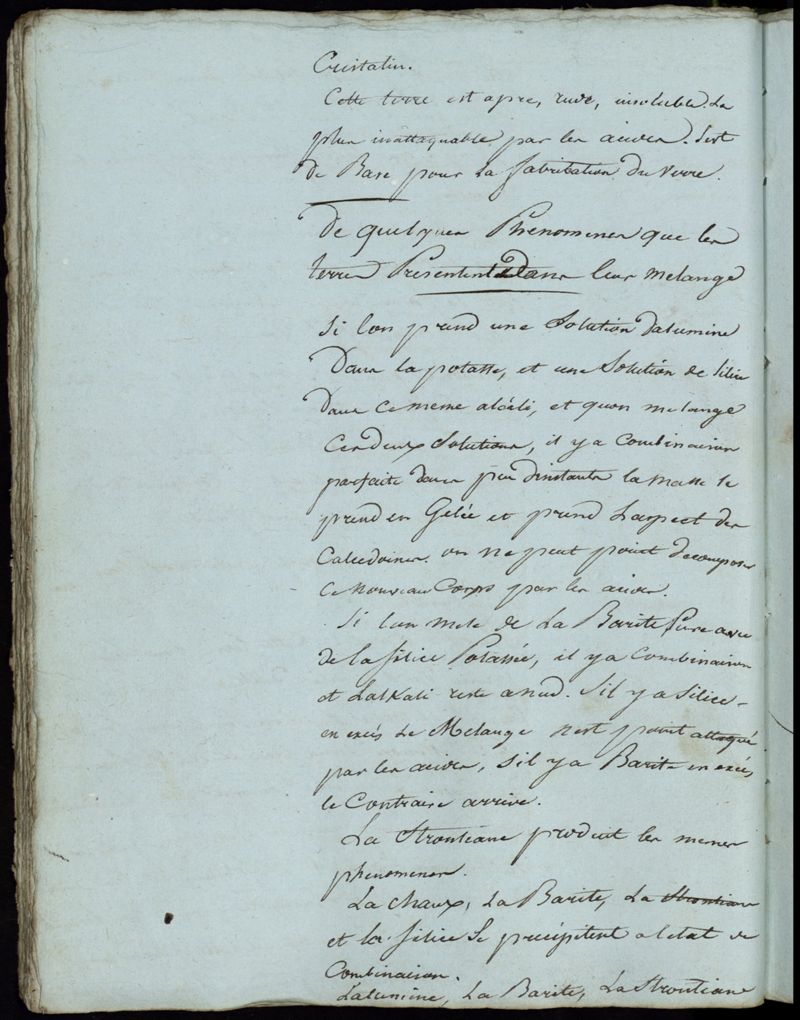 Cristalin.
Cette terre est apre, rude, insoluble. La
plus inattaquable par les acides. Sert
de Base pour la fabrication du verre.
De quelques Phenomenes que les
terres Presentent Dans leur melange
Si lon prend une Solution dalumine
Dans la potasse, et une Solution de silice
Dans ce meme alcali, et quon melange
Ces deux Solutions, il y a Combinaison
parfaite dans peu dinstants la masse se
prend en Gelée et prend Laspect des
Calcedoines. on ne peut point decomposer
Ce nouveau Corps par les acides.
Si lon mele de La Barite Pure avec
de la Silice Potassée, il y a Combinaison
et Lalkali reste a nud. S'il y a Silice
en excés Le Melange n'est point attaqué
par les acides, s'il y a Barite en excés,
le Contraire arrive.
La Strontiane produit les memes
phenomenes.
La chaux, La Barite, La Strontiane
et la Silice Se precipitent a letat de
Combinaison.
Lalumine, La Barite, La Strontiane